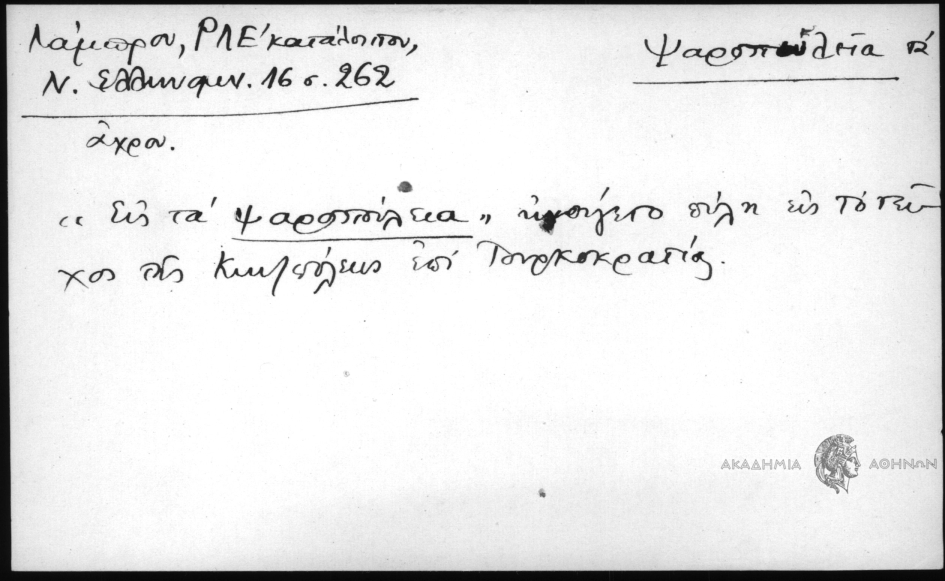 Λάμπρου, ΡΛΕ΄ κατάλοιπον,
Ν. Ἑλληνομν. 16 σ. 262
Ψαροπωλεῖα τά
ἄχρον.
"Εἰς τά ψαροπωλεια" πύλη εἰς τό τεῖ
χος τῆς Κωνσ/πόλεως ἐπί Τουρκοκρατίας.
ΑΚΑΔΗΜΙΑ ΑΘΗΝΩΝ